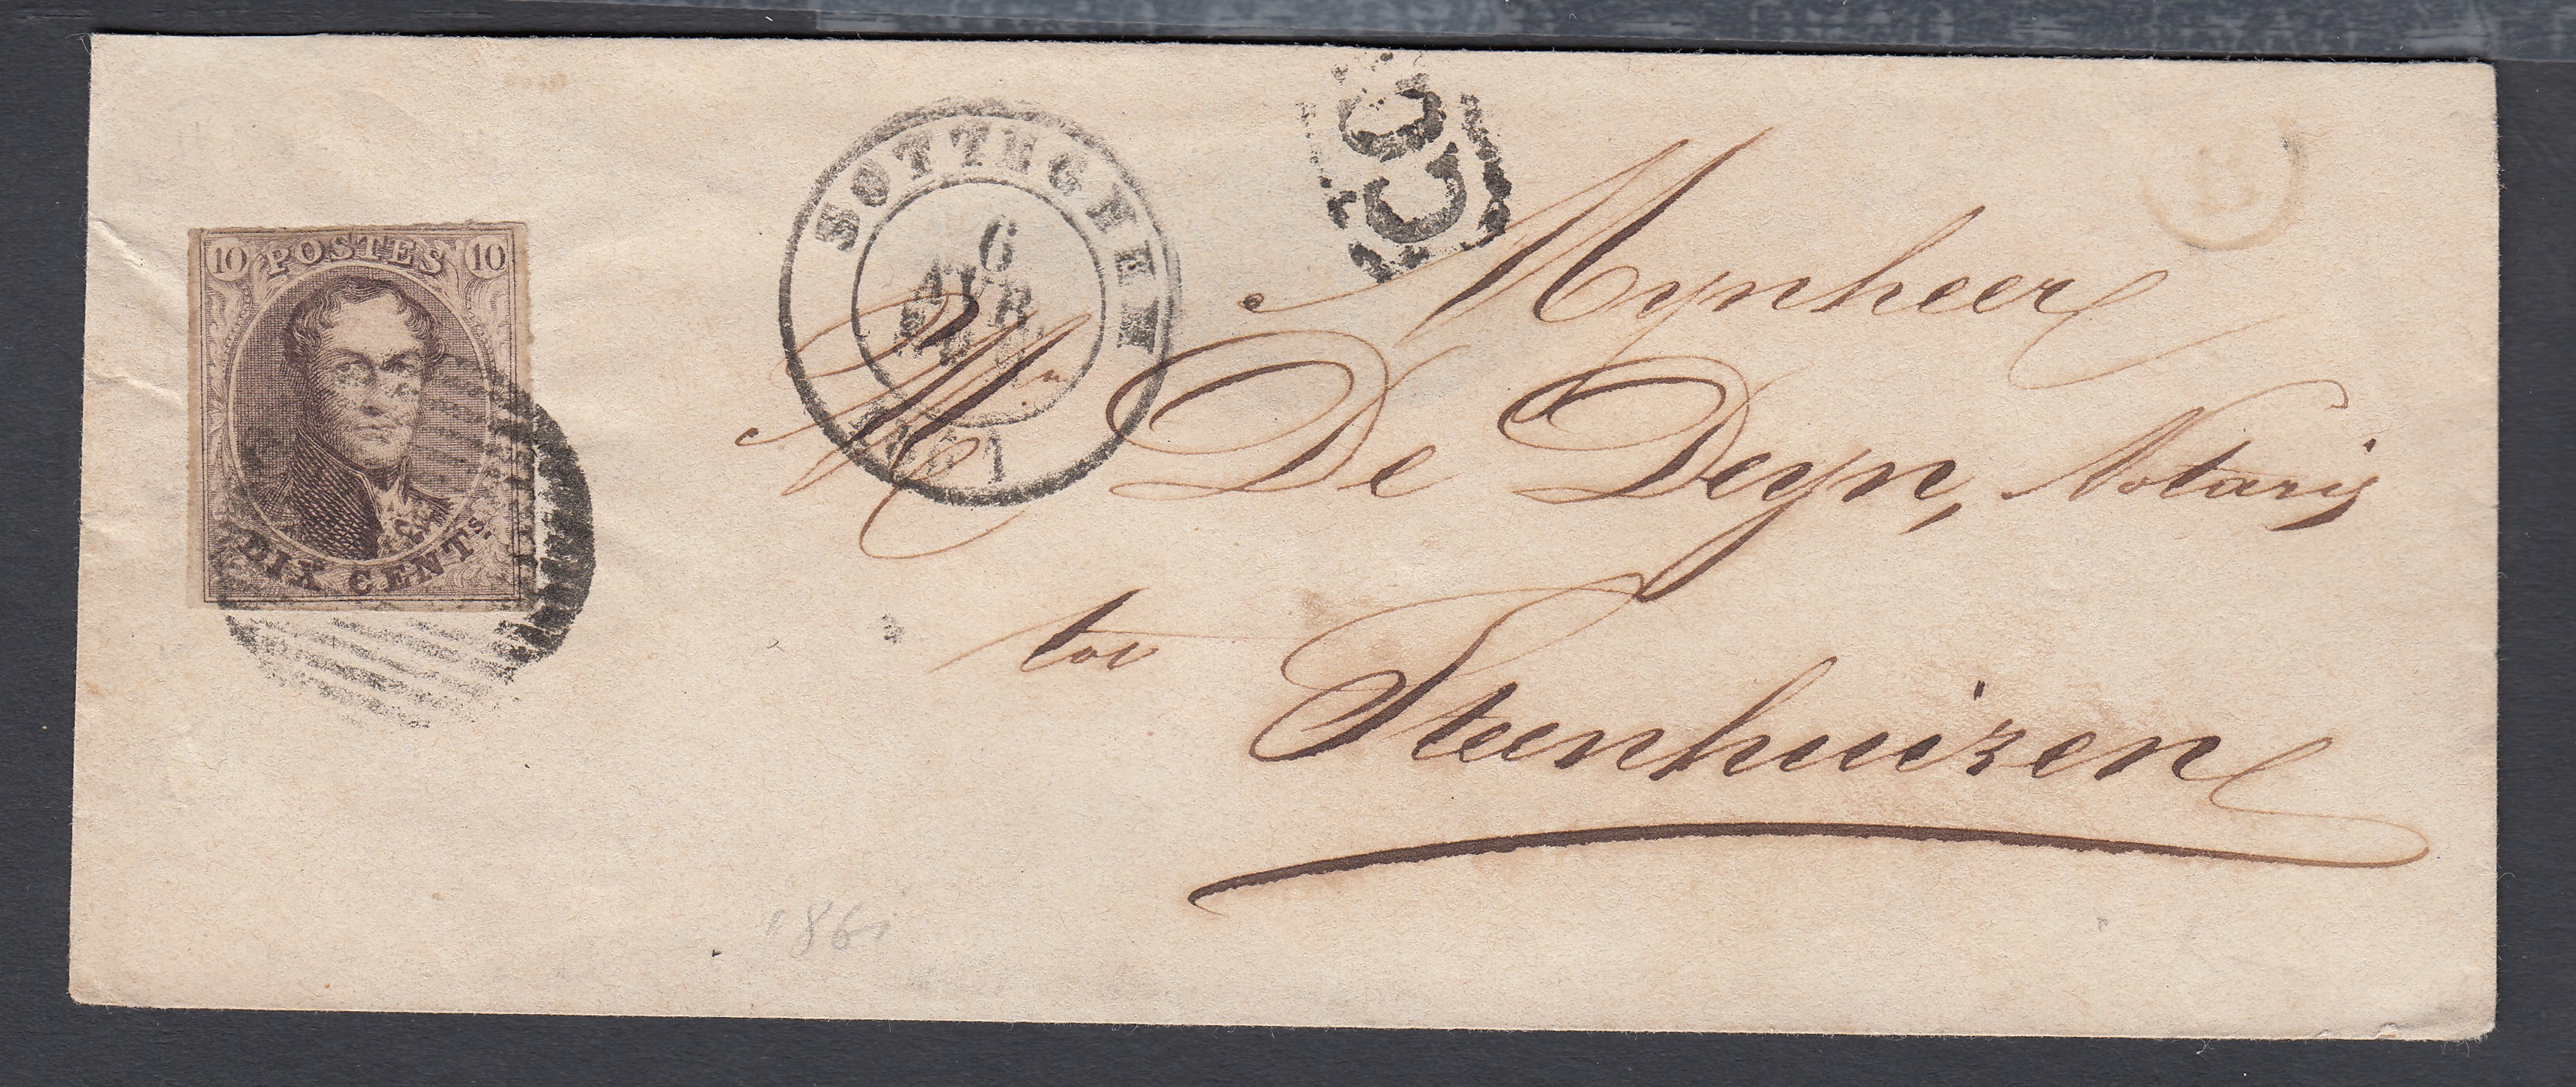 10 POSTES 10
DIX CENTS.
SOTTEGHEM
6
AVR
1861
CC
Mynheer
Mr De Deyn, Notaris
tot
Steenhuizen
1861